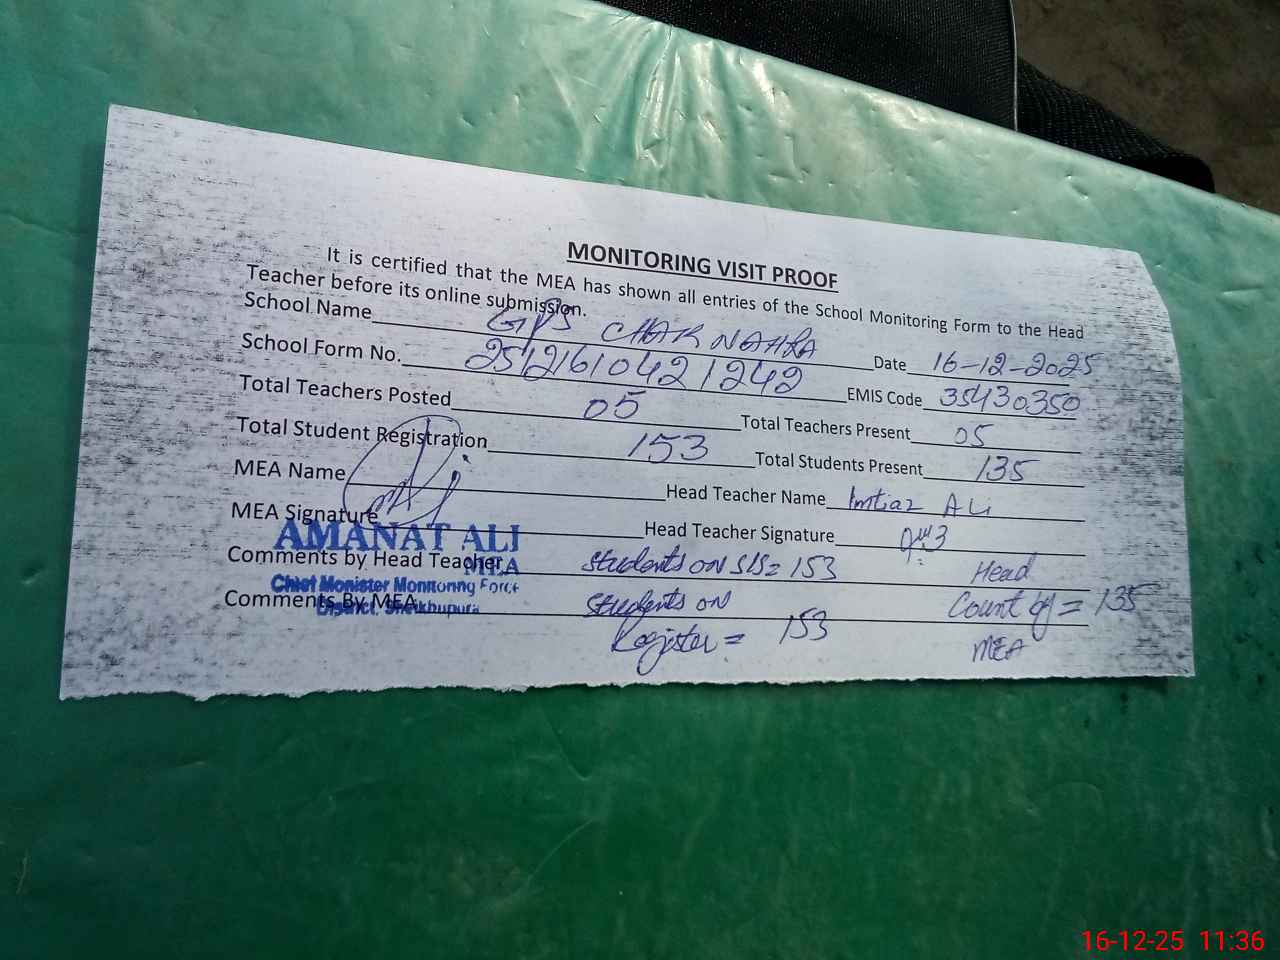 MONITORING VISIT PROOF
It is certified that the MEA has shown all entries of the School Monitoring Form to the Head
Teacher before its online submission.
School Name GPS CHAK NAHRA Date 16-12-2025
School Form No. 2512161042 1242 EMIS Code 35430350
Total Teachers Posted 05 Total Teachers Present 05
Total Student Registration 153 Total Students Present 135
MEA Name Head Teacher Name Imtiaz Ali
MEA Signature Head Teacher Signature
AMANAT ALI
MEA
Chief Monister Monitoring Force
District. Sheikhupura
Comments by Head Teacher Students on SIS= 153 Head
Comments By MEA Students on Count of = 135
Register = 153 MEA
16-12-25 11:36